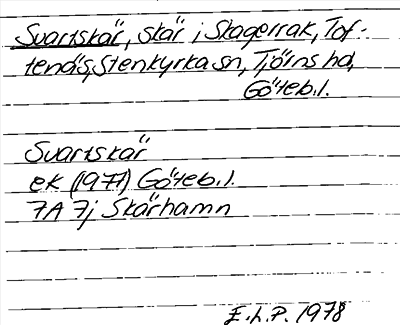 Svartskär, skär i Skagerrak, Tof-
tenäs, Stenkyrka sn, Tjörns hd,
Göteb.l.
Svartskär
ek (1977) Göteb.l.
7A 7j Skärhamn
E.L.P. 1978